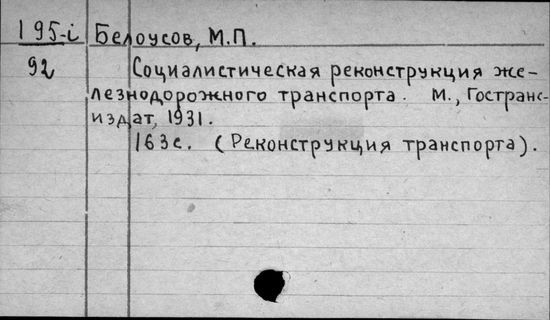 195-i Белоусов, М.П.
92 Социалистическая реконструкция же-
лезнодорожного транспорта. М., Гостранс-
издат, 1931.
163с. (Реконструкция транспорта).